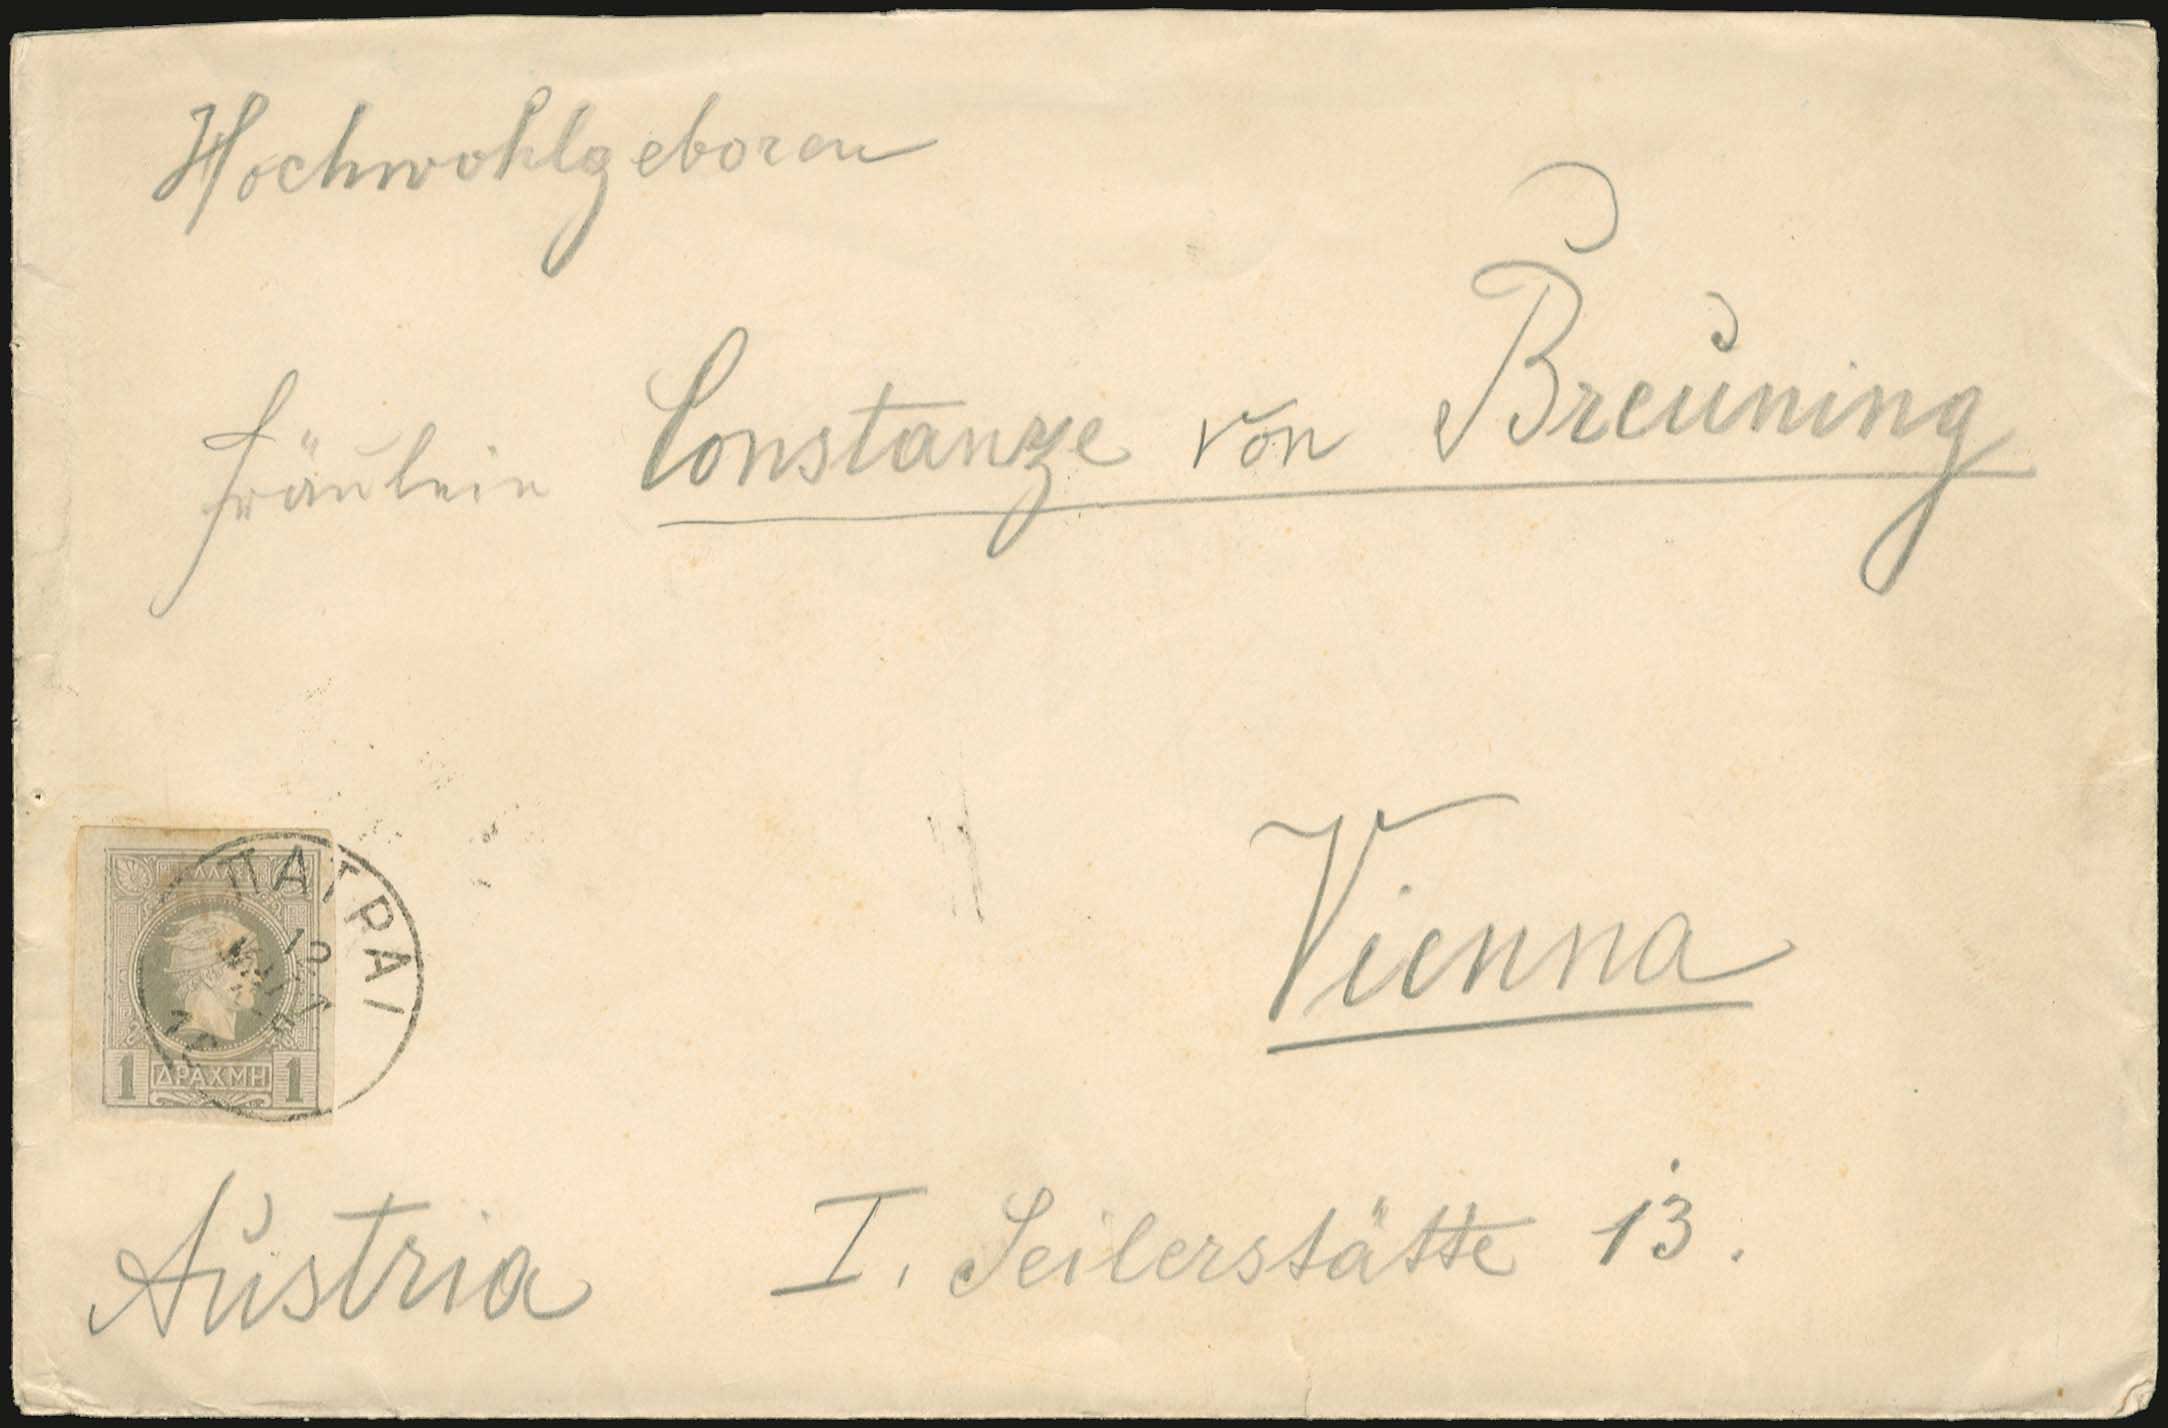 Hochwohlgeboren
Fräulein Constanze von Breuning
Vienna
ΕΛΛΑΣ
ΠΑΤΡΑΙ
12
1 ΔΡΑΧΜΗ 1
Austria
I. Seilerstätte 13.